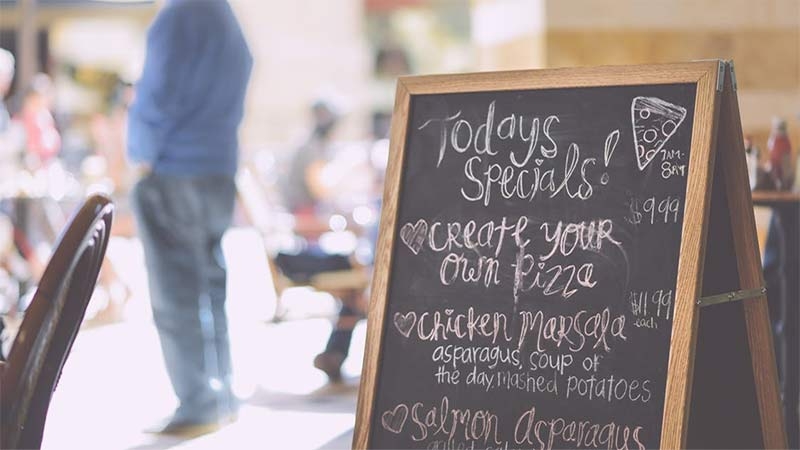 Todays
Specials!
7AM-
8PM
$9.99
Create your
own pizza
$11.99
each
Chicken Marsala
asparagus, soup of
the day, mashed potatoes
Salmon Asparagus
grilled salmon